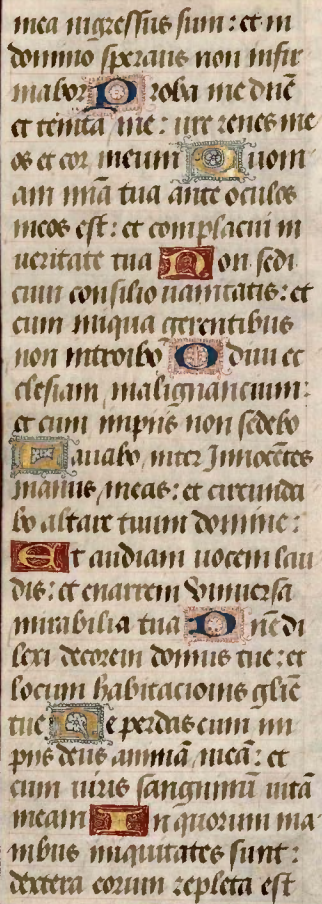 mea ingressus sum: et in
domino sperans non infir
mabor Proba me dñe
et tenta me: ure renes me
os et cor meum Quoni
am mĩa tua ante oculos
meos est: et complacui in
veritate tua Non sedi
cum consilio vanitatis: et
cum iniqua gerentibus
non introibo Odivi ec
clesiam malignancium:
et cum impiis non sedebo
Lavabo inter Innocẽtes
manus meas: et circunda
bo altare tuum domine:
Et audiam vocem lau
dis: et enarrem Vniversa
mirabilia tua Dñe di
lexi decorem domus tue: et
locum habitacionis gliẽ
tue Ne perdas cum im
piis deus animã meã: et
cum viris sanguinũ vitã
meam In quorum ma
nibus iniquitates sunt:
dextera eorum repleta est